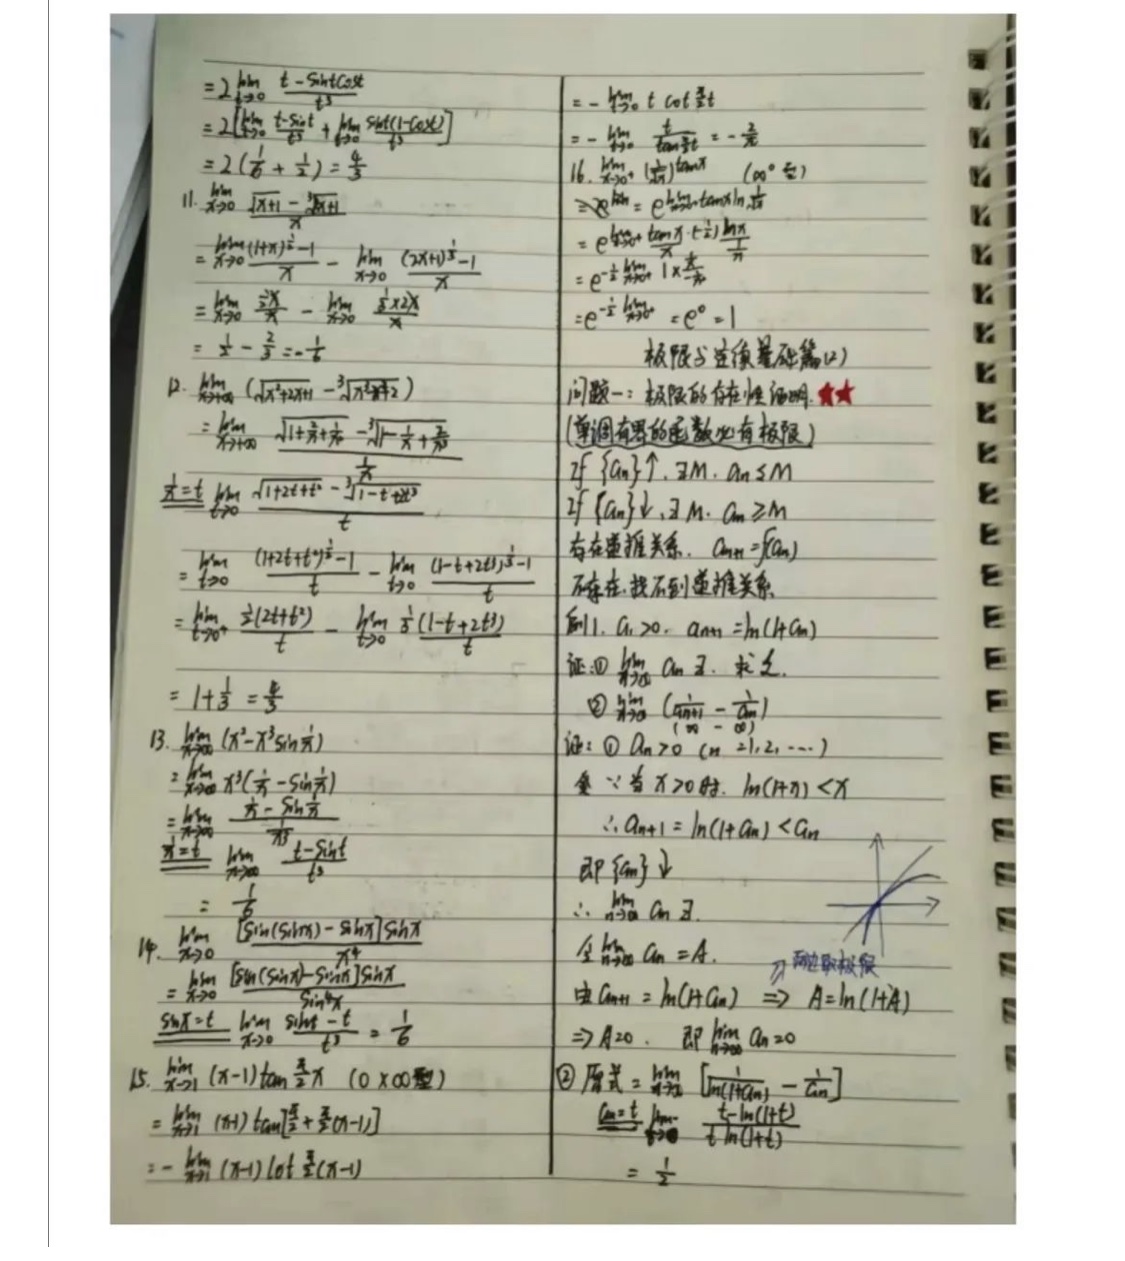 = 2 lim t→0 (t - sint cost)/t³
= 2[lim t→0 (t - sint)/t³ + lim t→0 sint(1-cost)/t³]
= 2(1/6 + 1/2) = 4/3
11. lim x→0 (√(x+1) - ³√(2x+1))/x
= lim x→0 ((1+x)^½ - 1)/x - lim x→0 ((2x+1)^⅓ - 1)/x
= lim x→0 (½x)/x - lim x→0 (⅓×2x)/x
= 1/2 - 2/3 = -1/6
12. lim x→+∞ (√(x²+2x+1) - ³√(x³-x²+2))
= lim x→+∞ (√(1+2/x+1/x²) - ³√(1-1/x+2/x³))/(1/x)
1/x=t lim t→0 (√(1+2t+t²) - ³√(1-t+2t³))/t
= lim t→0 ((1+2t+t²)^½ - 1)/t - lim t→0 ((1-t+2t³)^⅓ - 1)/t
= lim t→0⁺ ½(2t+t²)/t - lim t→0 ⅓(1-t+2t³)/t
= 1 + 1/3 = 4/3
13. lim x→∞ (x² - x³ sin 1/x)
= lim x→∞ x³(1/x - sin 1/x)
= lim x→∞ (1/x - sin 1/x)/(1/x³)
1/x=t lim x→∞ (t - sint)/t³
= 1/6
14. lim x→0 [sin(sinx) - sinx]sinx/x⁴
= lim x→0 [sin(sinx) - sinx]sinx/sin⁴x
sinx=t lim x→0 (sint - t)/t³ = 1/6
15. lim x→1 (x-1)tan π/2 x (0×∞型)
= lim x→1 (x-1) tan[π/2 + π/2(x-1)]
= - lim x→1 (x-1) cot π/2(x-1)
= - lim t→0 t cot π/2 t
= - lim t→0 t/(tan π/2 t) = -2/π
16. lim x→0⁺ (1/√x)^tanx (∞⁰型)
= e^(lim x→0⁺ tanx ln 1/√x)
= e^(lim x→0⁺ tanx/x · (-½) lnx/(1/x))
= e^(-½ lim x→0⁺ 1×(1/x)/(-1/x²))
= e^(-½ lim x→0⁺) = e⁰ = 1
极限与连续基础篇(2)
问题一: 极限的存在性证明.★★
(单调有界的函数必有极限)
If {an}↑, ∃M. an≤M
If {an}↓, ∃M. an≥M
存在递推关系. an+1=f(an)
不存在.找不到递推关系
例1. a1>0. an+1=ln(1+an)
证:① lim n→∞ an ∃. 求之.
② lim n→∞ (1/an+1 - 1/an)
(∞ - ∞)
证: ① an>0 (n=1,2,…)
∵当x>0时. ln(1+x)<x
∴an+1=ln(1+an)<an
即{an}↓
∴ lim n→∞ an ∃.
令 lim n→∞ an=A.
两边取极限
由an+1=ln(1+an) ⇒ A=ln(1+A)
⇒A=0. 即 lim n→∞ an=0
② 原式= lim n→∞ [1/ln(1+an) - 1/an]
an=t lim t→0 (t-ln(1+t))/(t ln(1+t))
= 1/2